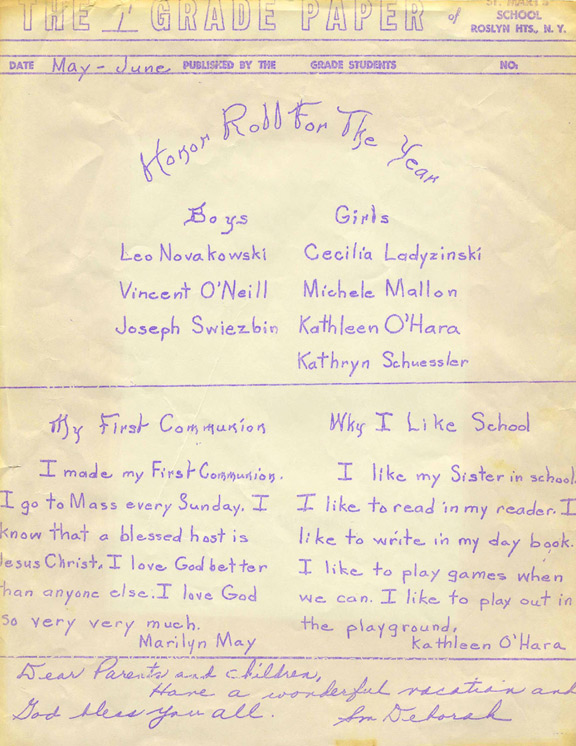 THE 1 GRADE PAPER of ST. MARY'S
SCHOOL
ROSLYN HTS., N. Y.
DATE May - June PUBLISHED BY THE GRADE STUDENTS NO:
Honor Roll For The Year
Boys
Leo Novakowski
Vincent O'Neill
Joseph Swiezbin
Girls
Cecilia Ladyzinski
Michele Mallon
Kathleen O'Hara
Kathryn Schuessler
My First Communion
I made my First Communion.
I go to Mass every Sunday. I
know that a blessed host is
Jesus Christ. I love God better
than anyone else. I love God
so very very much.
Marilyn May
Why I Like School
I like my Sister in school.
I like to read in my reader. I
like to write in my day book.
I like to play games when
we can. I like to play out in
the playground.
Kathleen O'Hara
Dear Parents and children,
Have a wonderful vacation and
God bless you all. Sm Deborah